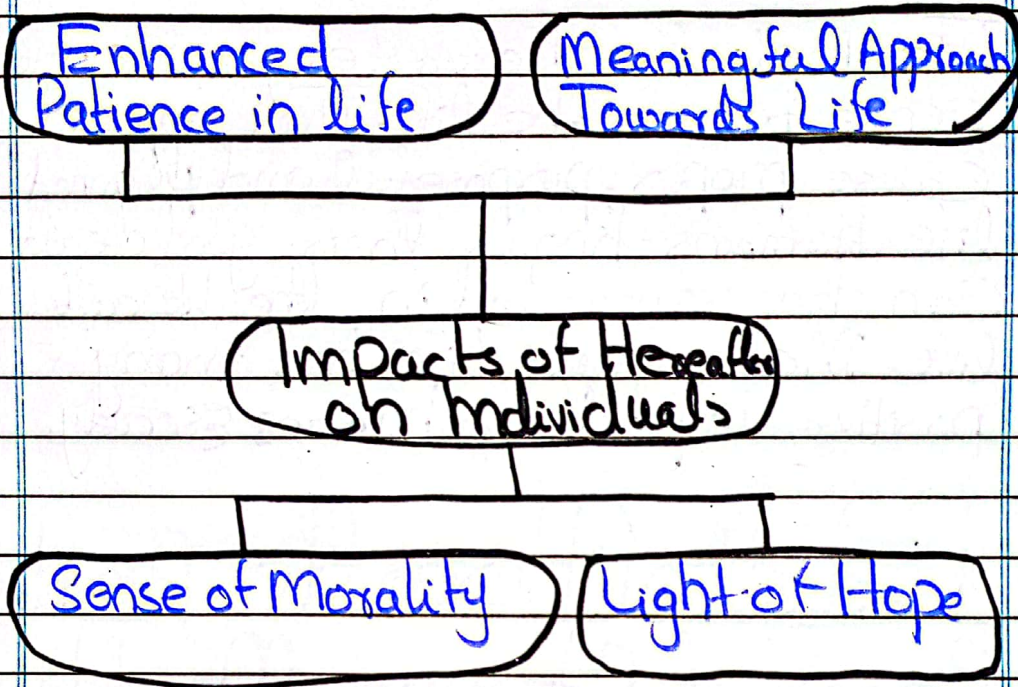 Enhanced
Patience in life
Meaningful Approach
Towards Life
Impacts of Hereafter
on Individuals
Sense of Morality
Light of Hope